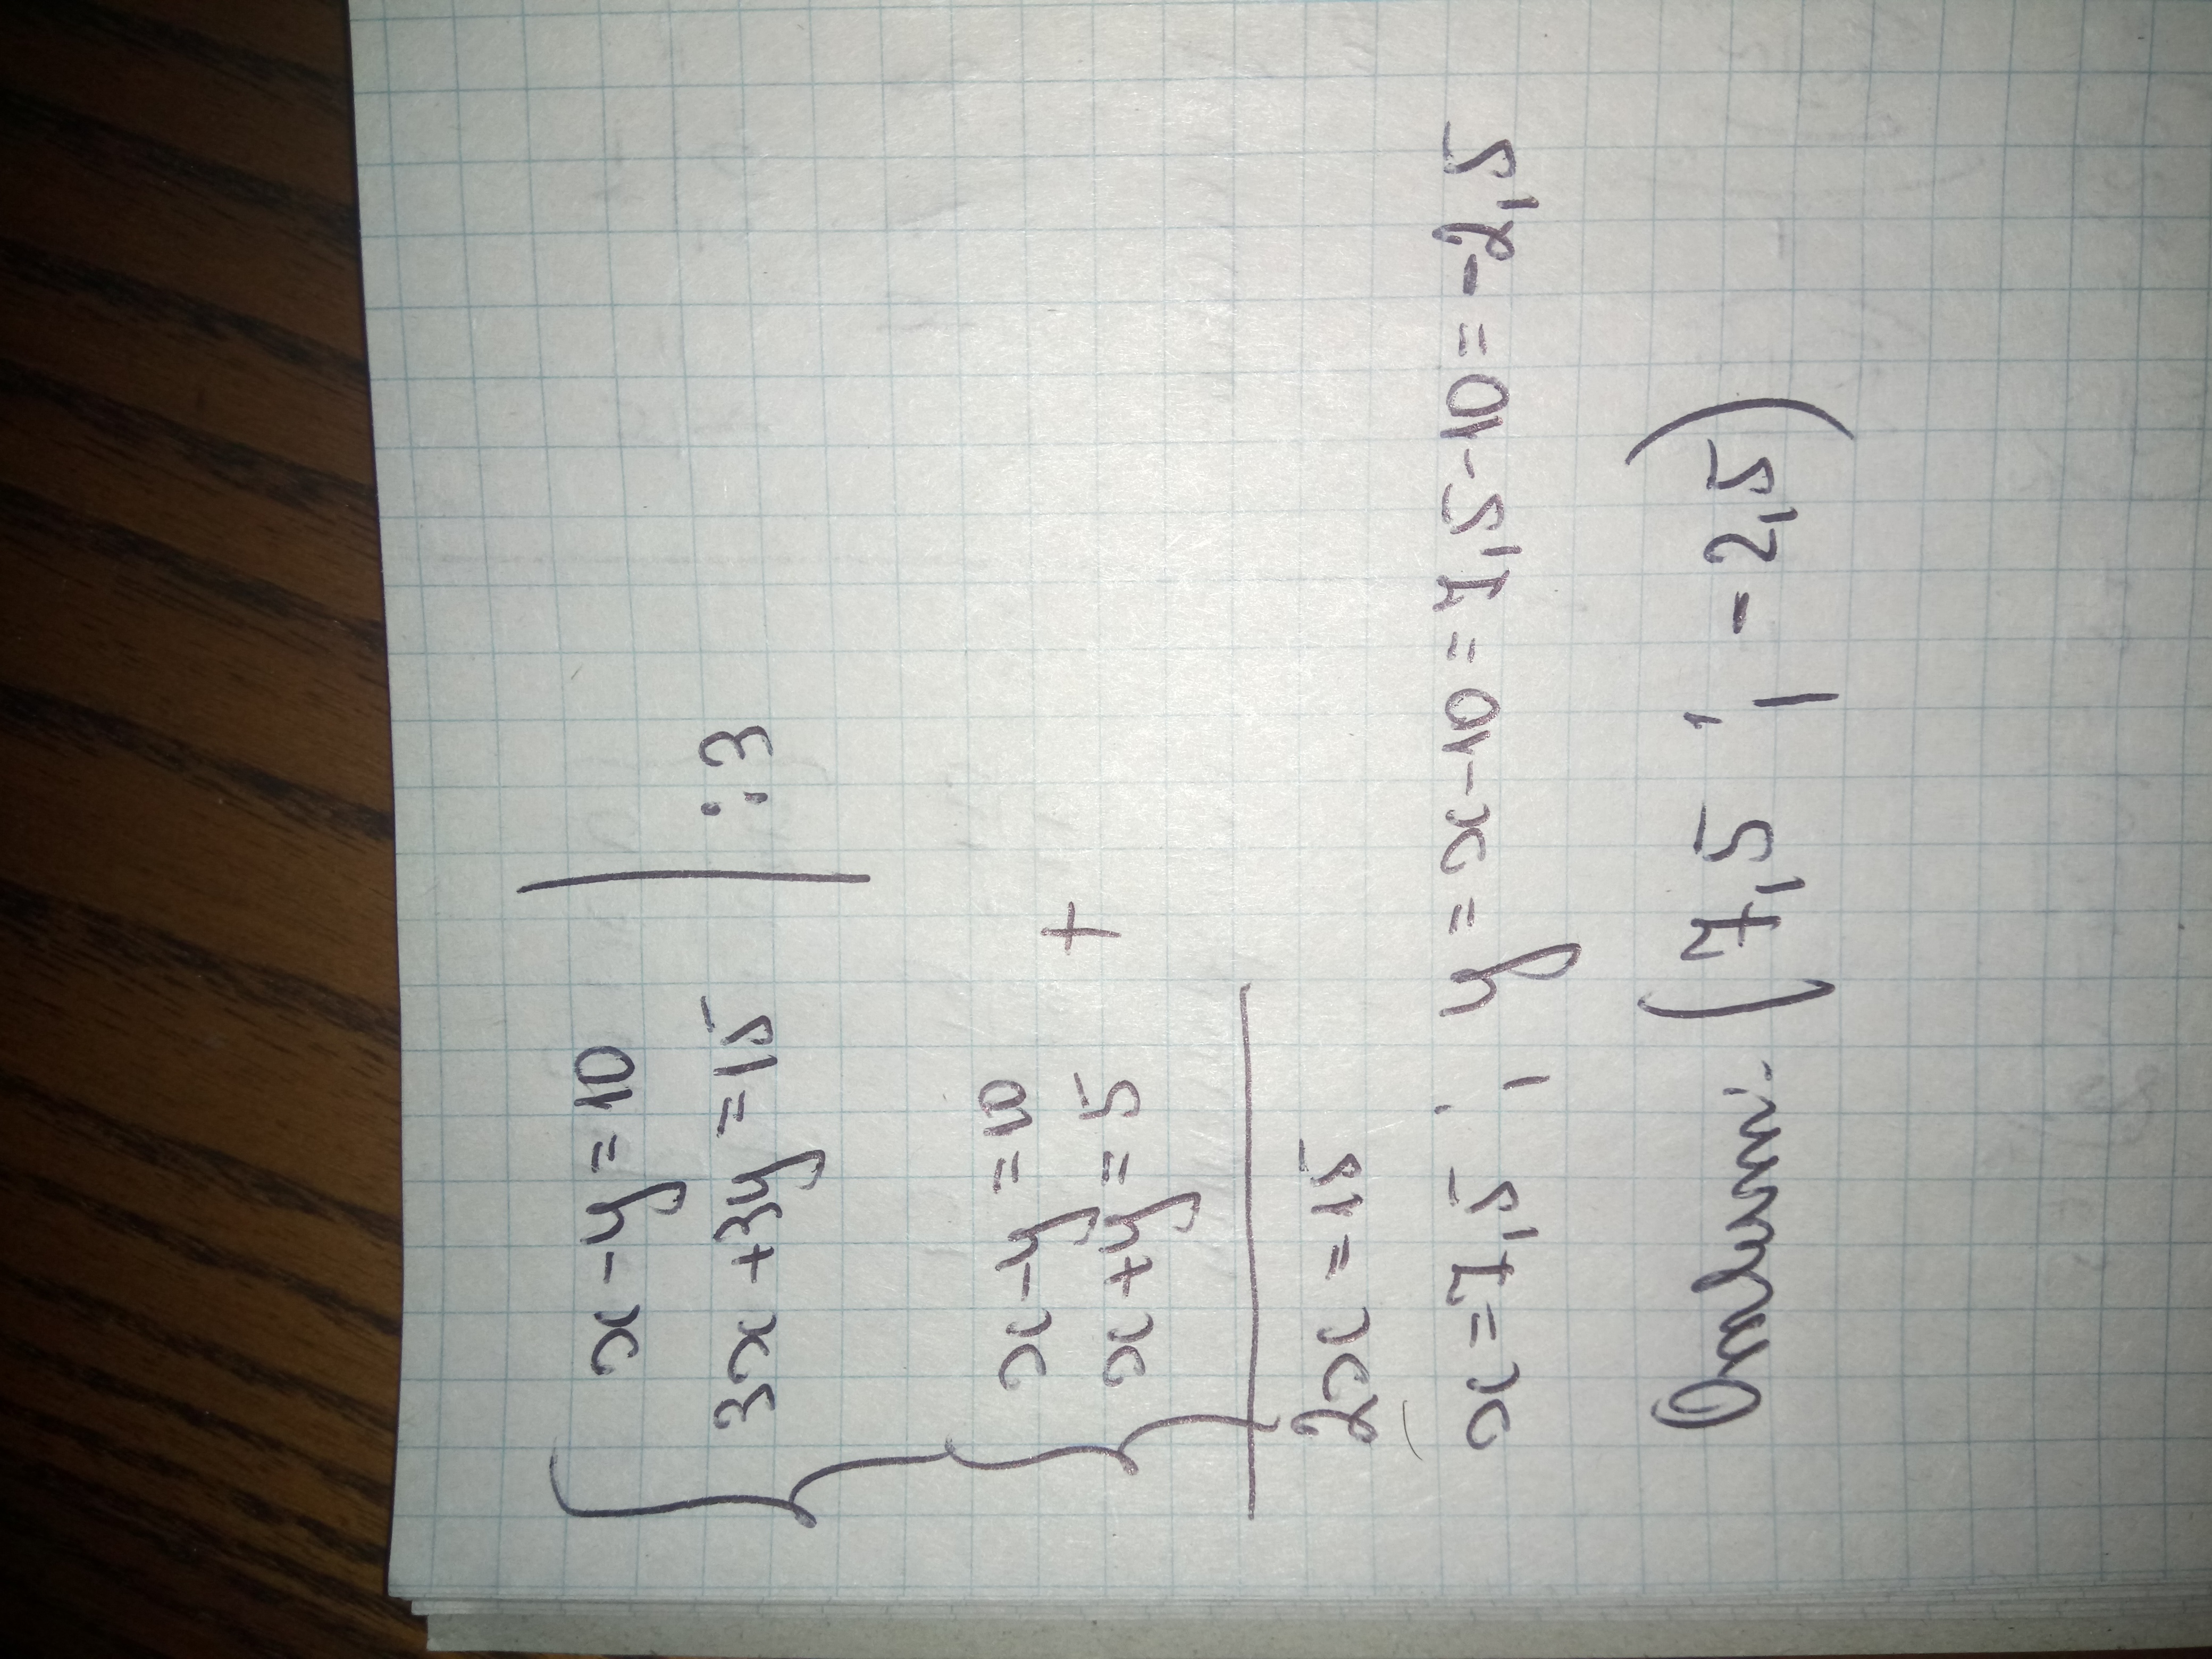 x - y = 10
3x + 3y = 15 | :3
x - y = 10
x + y = 5 +
2x = 15
x = 7,5 ; y = x - 10 = 7,5 - 10 = -2,5
(7,5 ; -2,5)